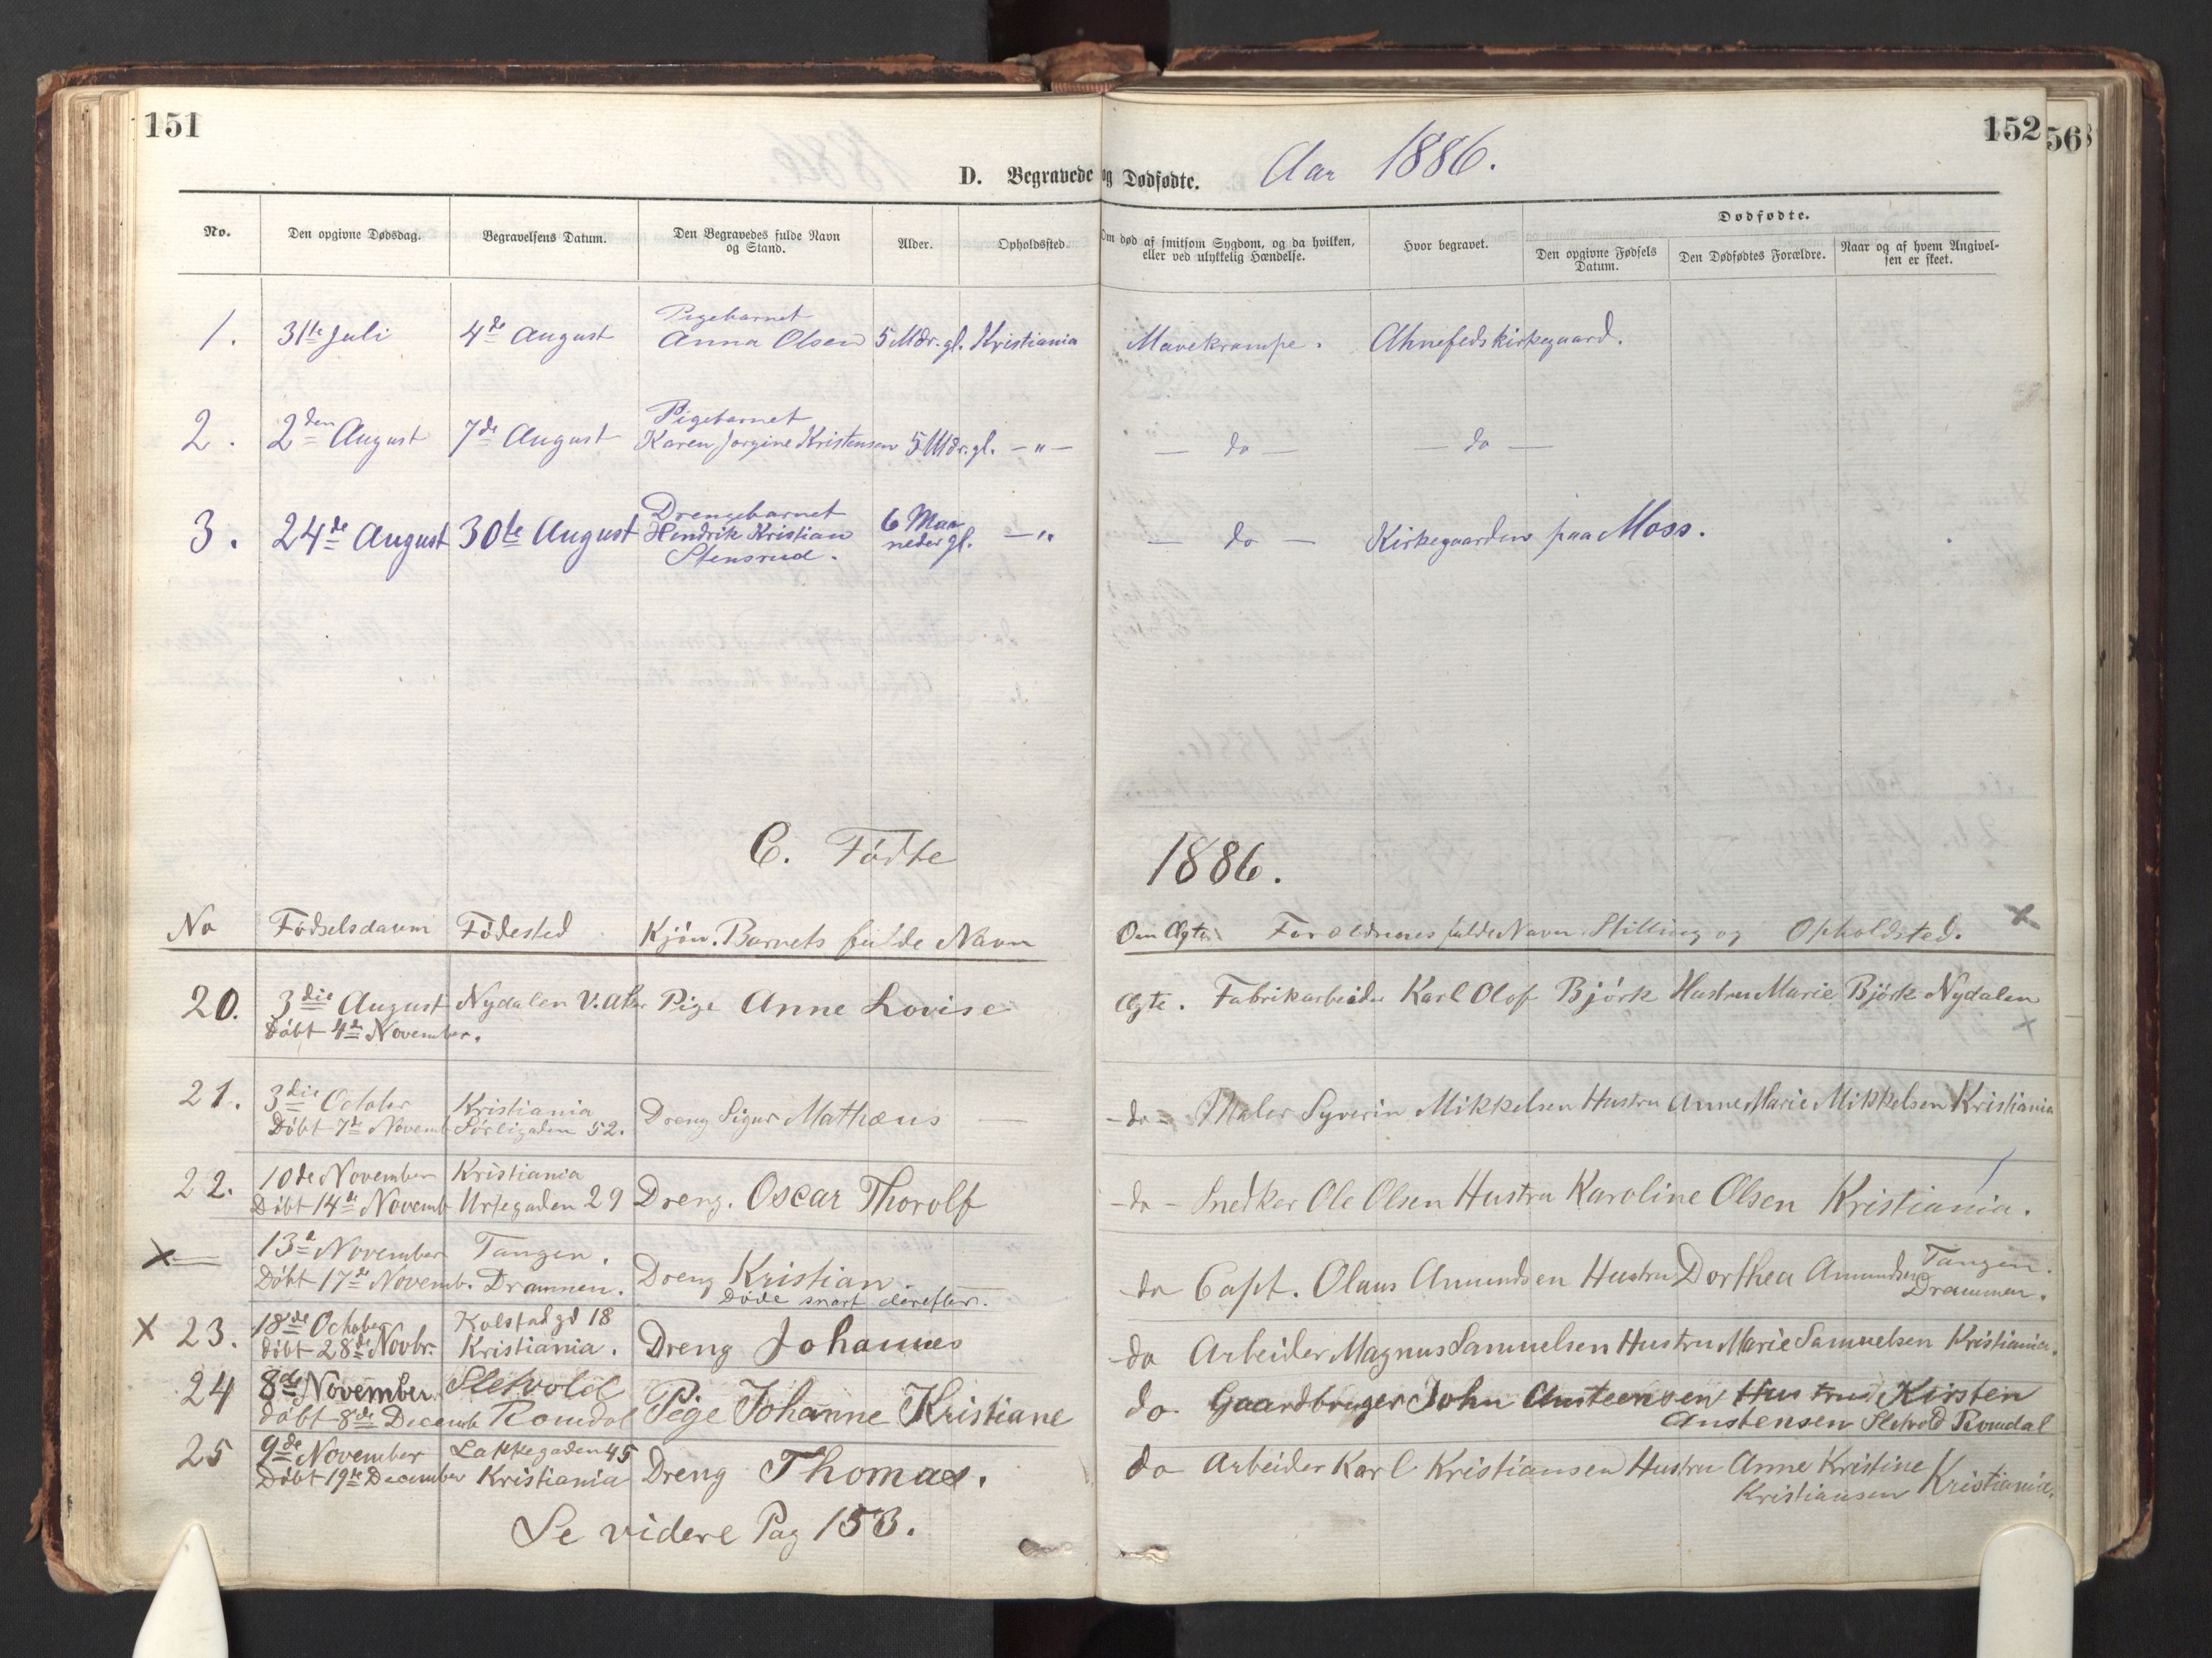 151
152
56
D. Begravede og Dødfødte. Aar 1886.
No.
Den opgivne Dødsdag.
Begravelsens Datum.
Den Begravedes fulde Navn
og Stand.
Alder.
Opholdssted.
Om død af smitsom Sygdom, og da hvilken,
eller ved ulykkelig Hændelse.
Hvor begravet.
Dødfødte.
Den opgivne Fødsels
Datum.
Den Dødfødtes Forældre.
Naar og af hvem Angivel-
sen er skeet.
Pigebarnet
1. 31te Juli 4de August Anna Olsen 5 Mdr. gl. Kristiania Mavekrampe. kirkegaard.
Pigebarnet
2. 2den August 7de August Karen Jorgine Kristensen 5 Mdr. gl. —"— — do — — do —
Drengebarnet
3. 24de August 30te August Hendrik Kristian 6 Maa
neder gl. —" — do — Kirkegaarden paa Moss.
Stensrud.
C. Födte 1886.
No Födselsdatum Födested Kjön. Barnets fulde Navn Om Ægte Forældrenes fulde Navn Stilling og Opholdsted. x
20. 3die August Nydalen V. Aker Pige Anne Lovise Ægte. Fabrikarbeider Karl Olof Björk Hustru Marie Björk Nydalen
Döbt 4de November. x
21. 3die October Kristiania Dreng Sigur Mathæus -do- Maler Syverin Mikkelsen Hustru Anne Marie Mikkelsen Kristiania
Döbt 7de Novemb Sörligaden 52.
22. 10de November Kristiania Dreng. Oscar Thorolf -do- Snedker Ole Olsen Hustru Karoline Olsen Kristiania.
Döbt 14de Novemb Urtegaden 29
x— 13de November Tangen. Dreng Kristian do Capt. Olaus Amundsen Hustru Dorthea Amundsen Tangen.
Döbt 17de Novemb. Drammen. Döde snart derefter. Drammen.
x 23. 18de October Kolstadgd 18 Dreng Johannes do Arbeider Magnus Samuelsen Hustru Marie Samuelsen Kristiania.
Döbt 28de Novbr. Kristiania.
24 8de November Sletvold Pige Johanne Kristiane do. Gaardbruger John Austensen Hustru Kirsten
döbt 8de Decemb Romdal Austensen Sletvold Romdal
25 9de November Lakkegaden 45 Dreng Thomas. do Arbeider Karl Kristiansen Hustru Anne Kristine
Döbt 19de December Kristiania Kristiansen Kristiania.
Se videre Pag 153.